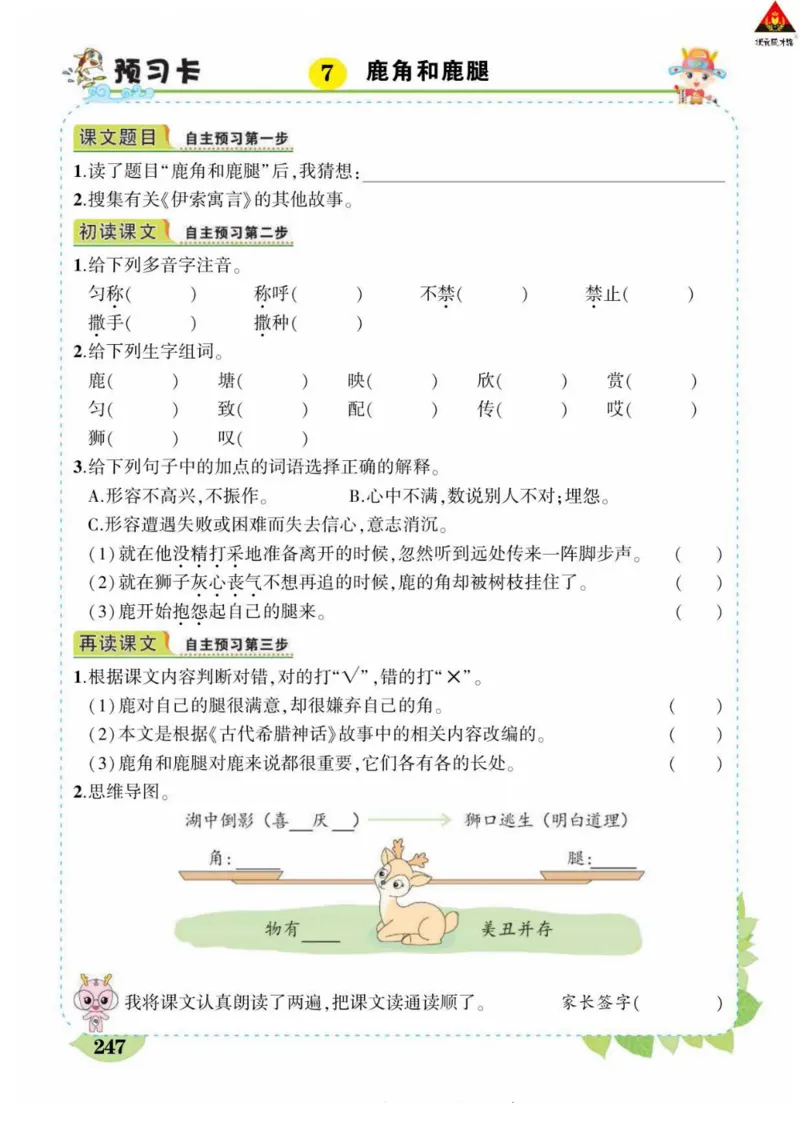 状元成才路
预习卡
7 鹿角和鹿腿
课文题目 自主预习第一步
1.读了题目“鹿角和鹿腿”后,我猜想:
2.搜集有关《伊索寓言》的其他故事。
初读课文 自主预习第二步
1.给下列多音字注音。
匀称( ) 称呼( ) 不禁( ) 禁止( )
撒手( ) 撒种( )
2.给下列生字组词。
鹿( ) 塘( ) 映( ) 欣( ) 赏( )
匀( ) 致( ) 配( ) 传( ) 哎( )
狮( ) 叹( )
3.给下列句子中的加点的词语选择正确的解释。
A.形容不高兴,不振作。 B.心中不满,数说别人不对;埋怨。
C.形容遭遇失败或困难而失去信心,意志消沉。
(1)就在他没精打采地准备离开的时候,忽然听到远处传来一阵脚步声。 ( )
(2)就在狮子灰心丧气不想再追的时候,鹿的角却被树枝挂住了。 ( )
(3)鹿开始抱怨起自己的腿来。 ( )
再读课文 自主预习第三步
1.根据课文内容判断对错,对的打“√”,错的打“×”。
(1)鹿对自己的腿很满意,却很嫌弃自己的角。 ( )
(2)本文是根据《古代希腊神话》故事中的相关内容改编的。 ( )
(3)鹿角和鹿腿对鹿来说都很重要,它们各有各的长处。 ( )
2.思维导图。
湖中倒影(喜__厌__) 狮口逃生(明白道理)
角:____ 腿:____
物有____ 美丑并存
我将课文认真朗读了两遍,把课文读通读顺了。 家长签字( )
247